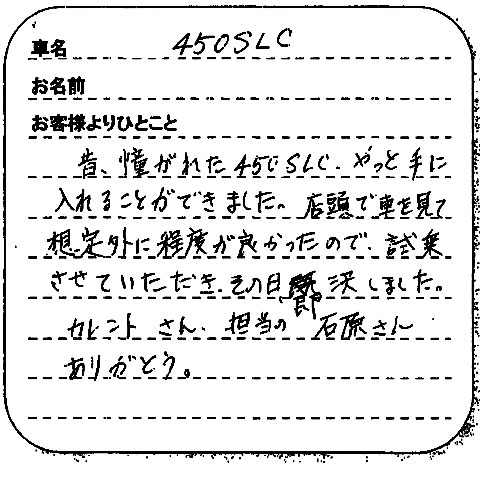 車名 450SLC
お名前
お客様よりひとこと
昔、憧がれた450SLC、やっと手に
入れることができました。店頭で車を見て
想定外に程度が良かったので、試乗
させていただき、その日即決しました。
カレントさん、担当の石原さん
ありがとう。